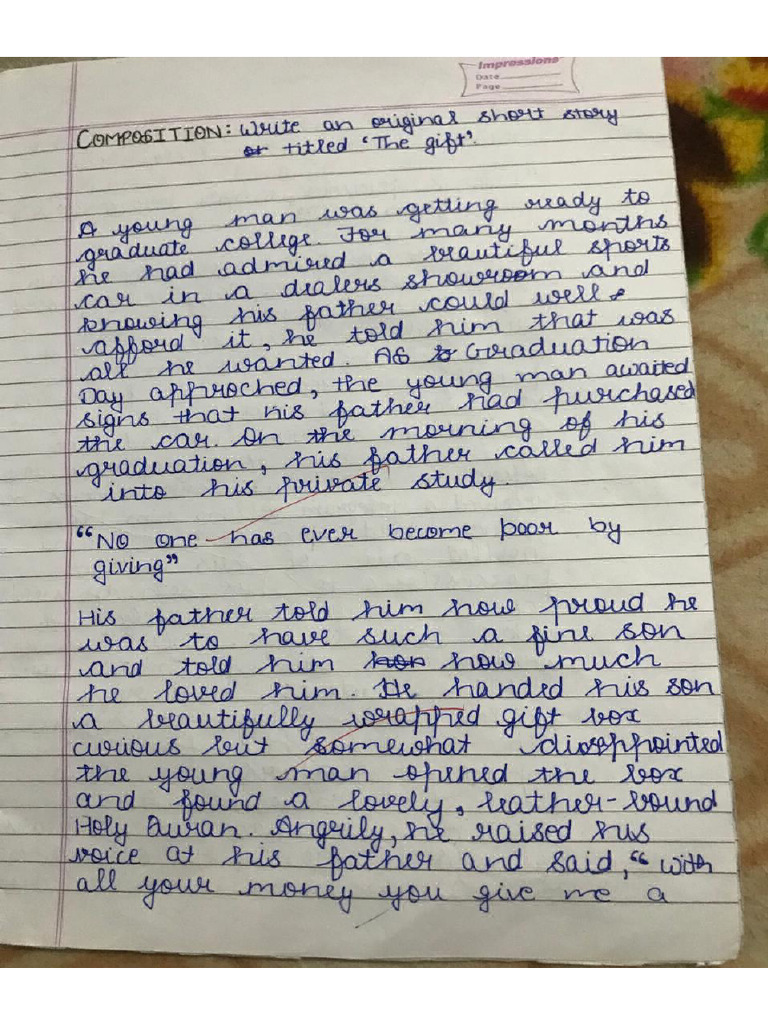 Impressions
Date
Page
COMPOSITION: Write an original short story
or titled 'The gift'.
A young man was getting ready to
graduate college. For many months
he had admired a beautiful sports
car in a dealers showroom and
knowing his father could well
afford it, he told him that was
all he wanted. As Graduation
Day approched, the young man awaited
signs that his father had purchased
the car. On the morning of his
graduation, his father called him
into his private study.
"No one has ever become poor by
giving"
His father told him how proud he
was to have such a fine son
and told him how much
he loved him. He handed his son
a beautifully wrapped gift box
curious but somewhat disappointed
the young man opened the box
and found a lovely, leather-bound
Holy Quran. Angrily, he raised his
voice at his father and said, "with
all your money you give me a